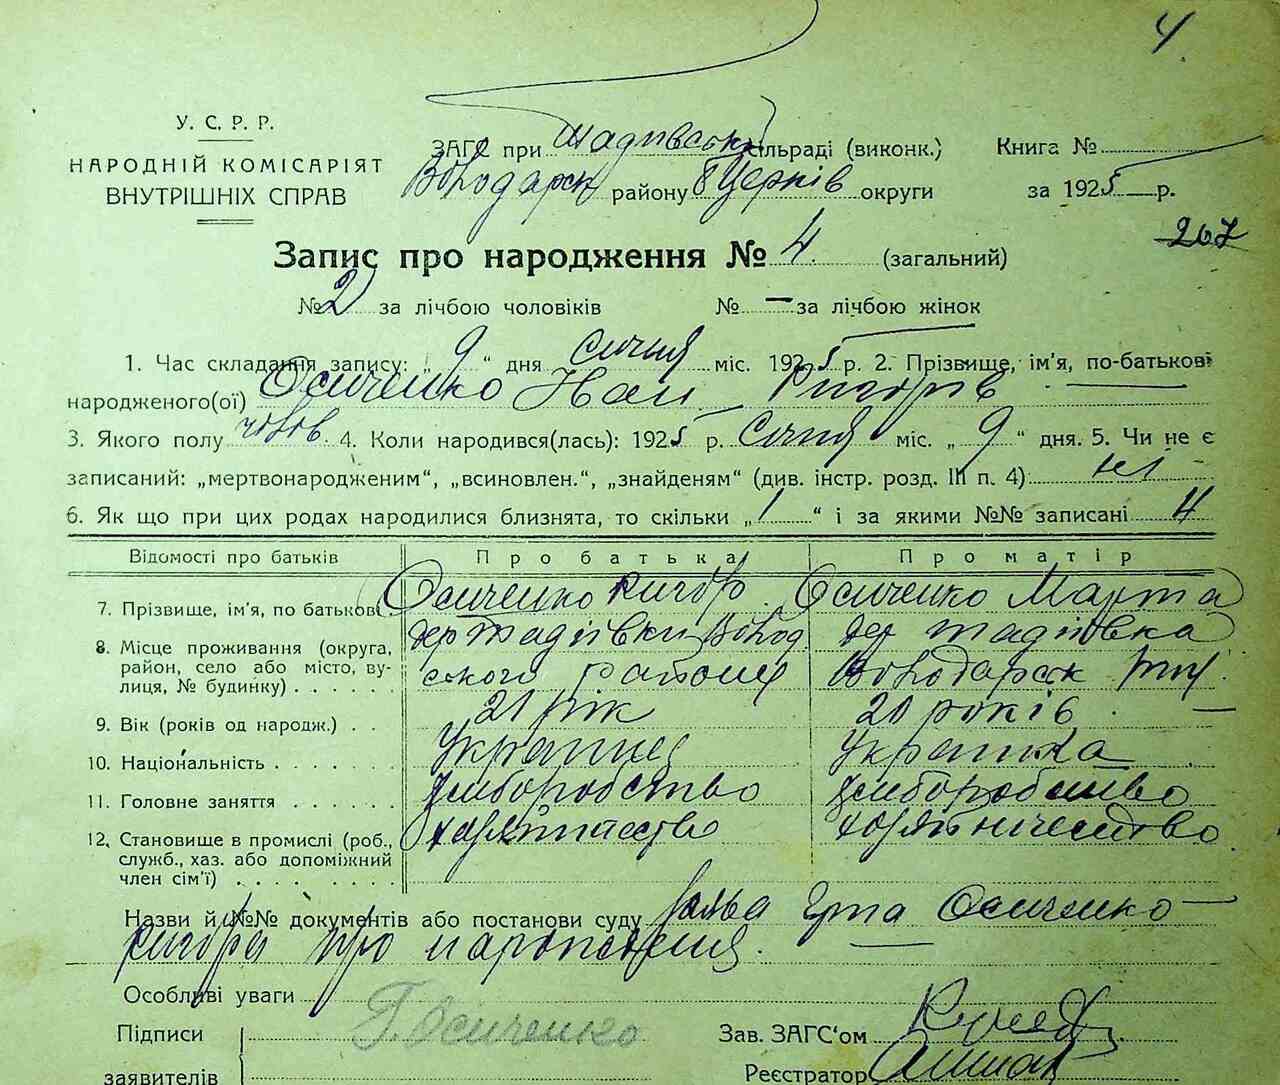 4.
У. С. Р. Р.
НАРОДНІЙ КОМІСАРІЯТ
ВНУТРІШНІХ СПРАВ
ЗАГС при сільраді (виконк.)
Володарськ району БЦерків округи
Книга №
за 1925 р.
267
Запис про народження № 4. (загальний)
№ 2 за лічбою чоловіків № — за лічбою жінок
1. Час складання запису: „ 9 “ дня Січня міс. 1925 р. 2. Прізвище, ім'я, по-батькові
народженого(ої) Осиченко Иван
3. Якого полу чолов. 4. Коли народився(лась): 1925 р. Січня міс. „ 9 “ дня. 5. Чи не є
записаний: „мертвонародженим“, „всиновлен.“, „знайденям“ (див. інстр. розд. III п. 4) ні
6. Як що при цих родах народилися близнята, то скільки „ 1 “ і за якими №№ записані 4
Відомості про батьків Про батька Про матір
7. Прізвище, ім'я, по батькові Осиченко Осиченко Марта
8. Місце проживання (округа, район, село або місто, вулиця, № будинку) дер Тадіївки Волод ського району дер Тадіївка Володарськ
9. Вік (років од народж.) 21 рік 20 років
10. Національність Украинец Украинка
11. Головне заняття хліборобство хліборобство
12. Становище в промислі (роб., служб., хаз. або допоміжний член сім'ї)
Назви й №№ документів або постанови суду Заява Гр-на Осиченко
про народження.
Особливі уваги
Підписи Г. Осиченко
заявителів
Зав. ЗАГС'ом
Реєстратор